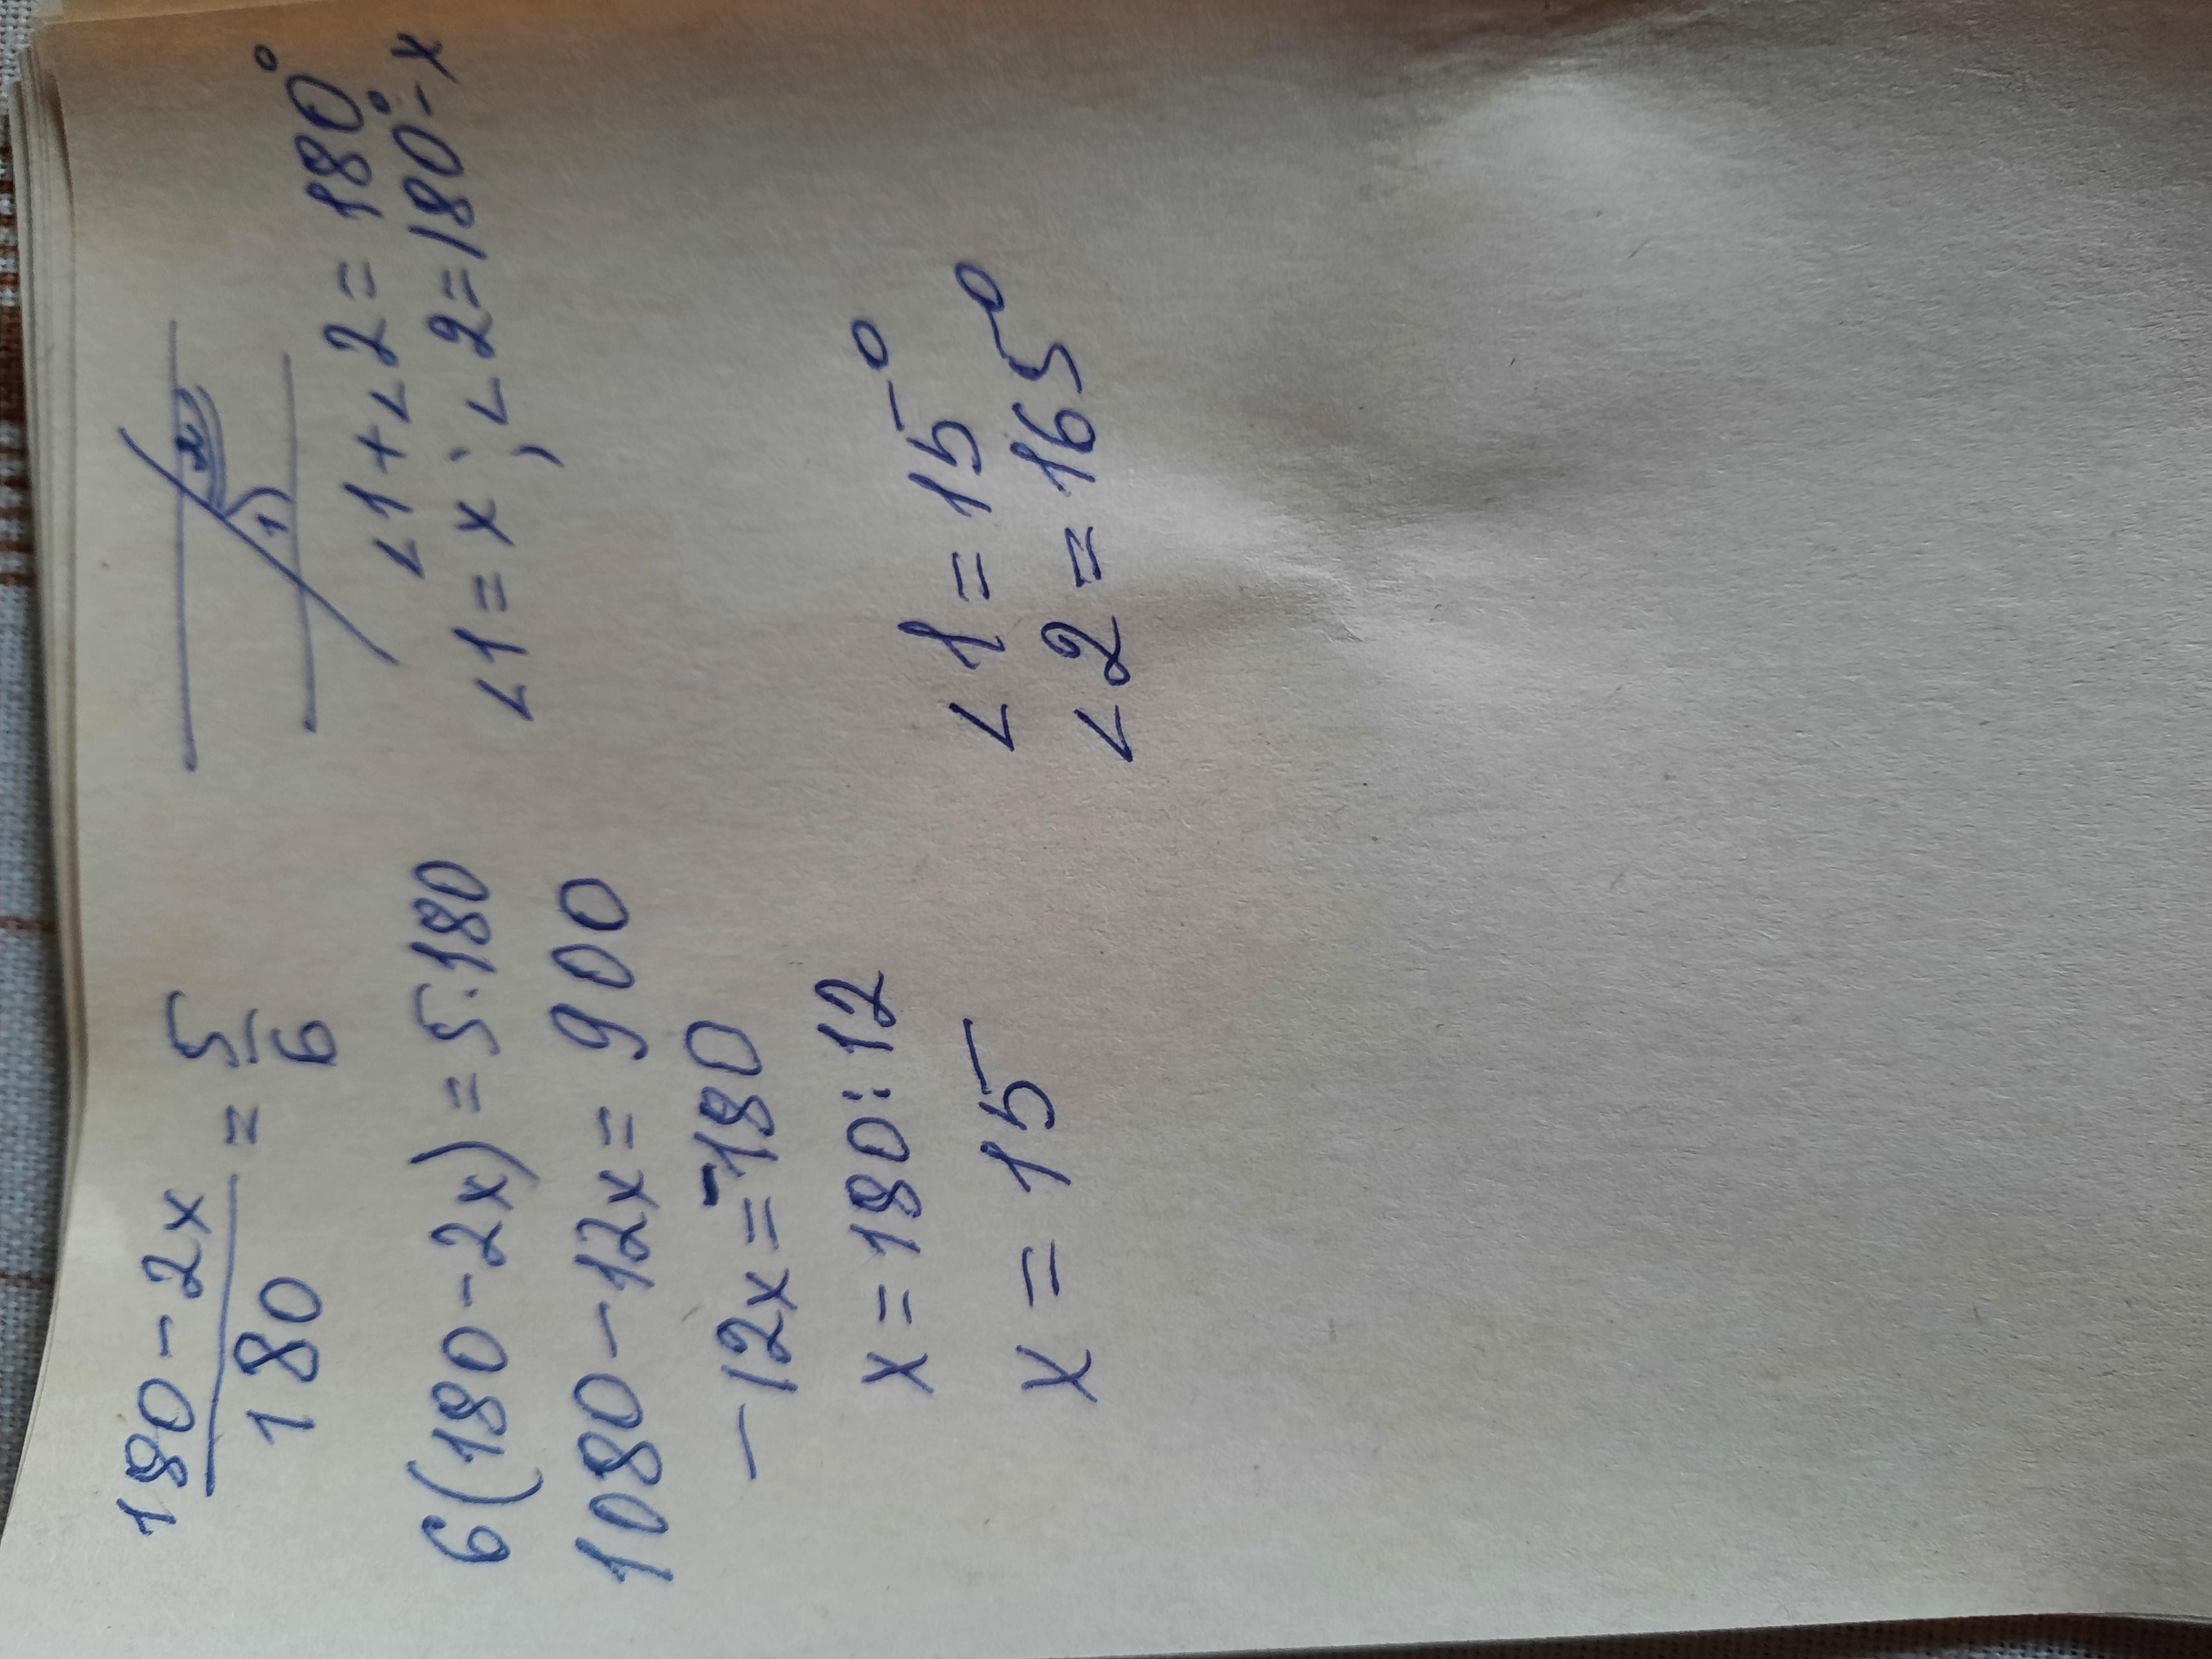 180-2x / 180 = 5/6
6(180-2x)=5·180
1080-12x=900
-12x=-180
x=180:12
x=15
2
1
∠1+∠2=180°
∠1=x; ∠2=180°-x
∠1=15°
∠2=165°